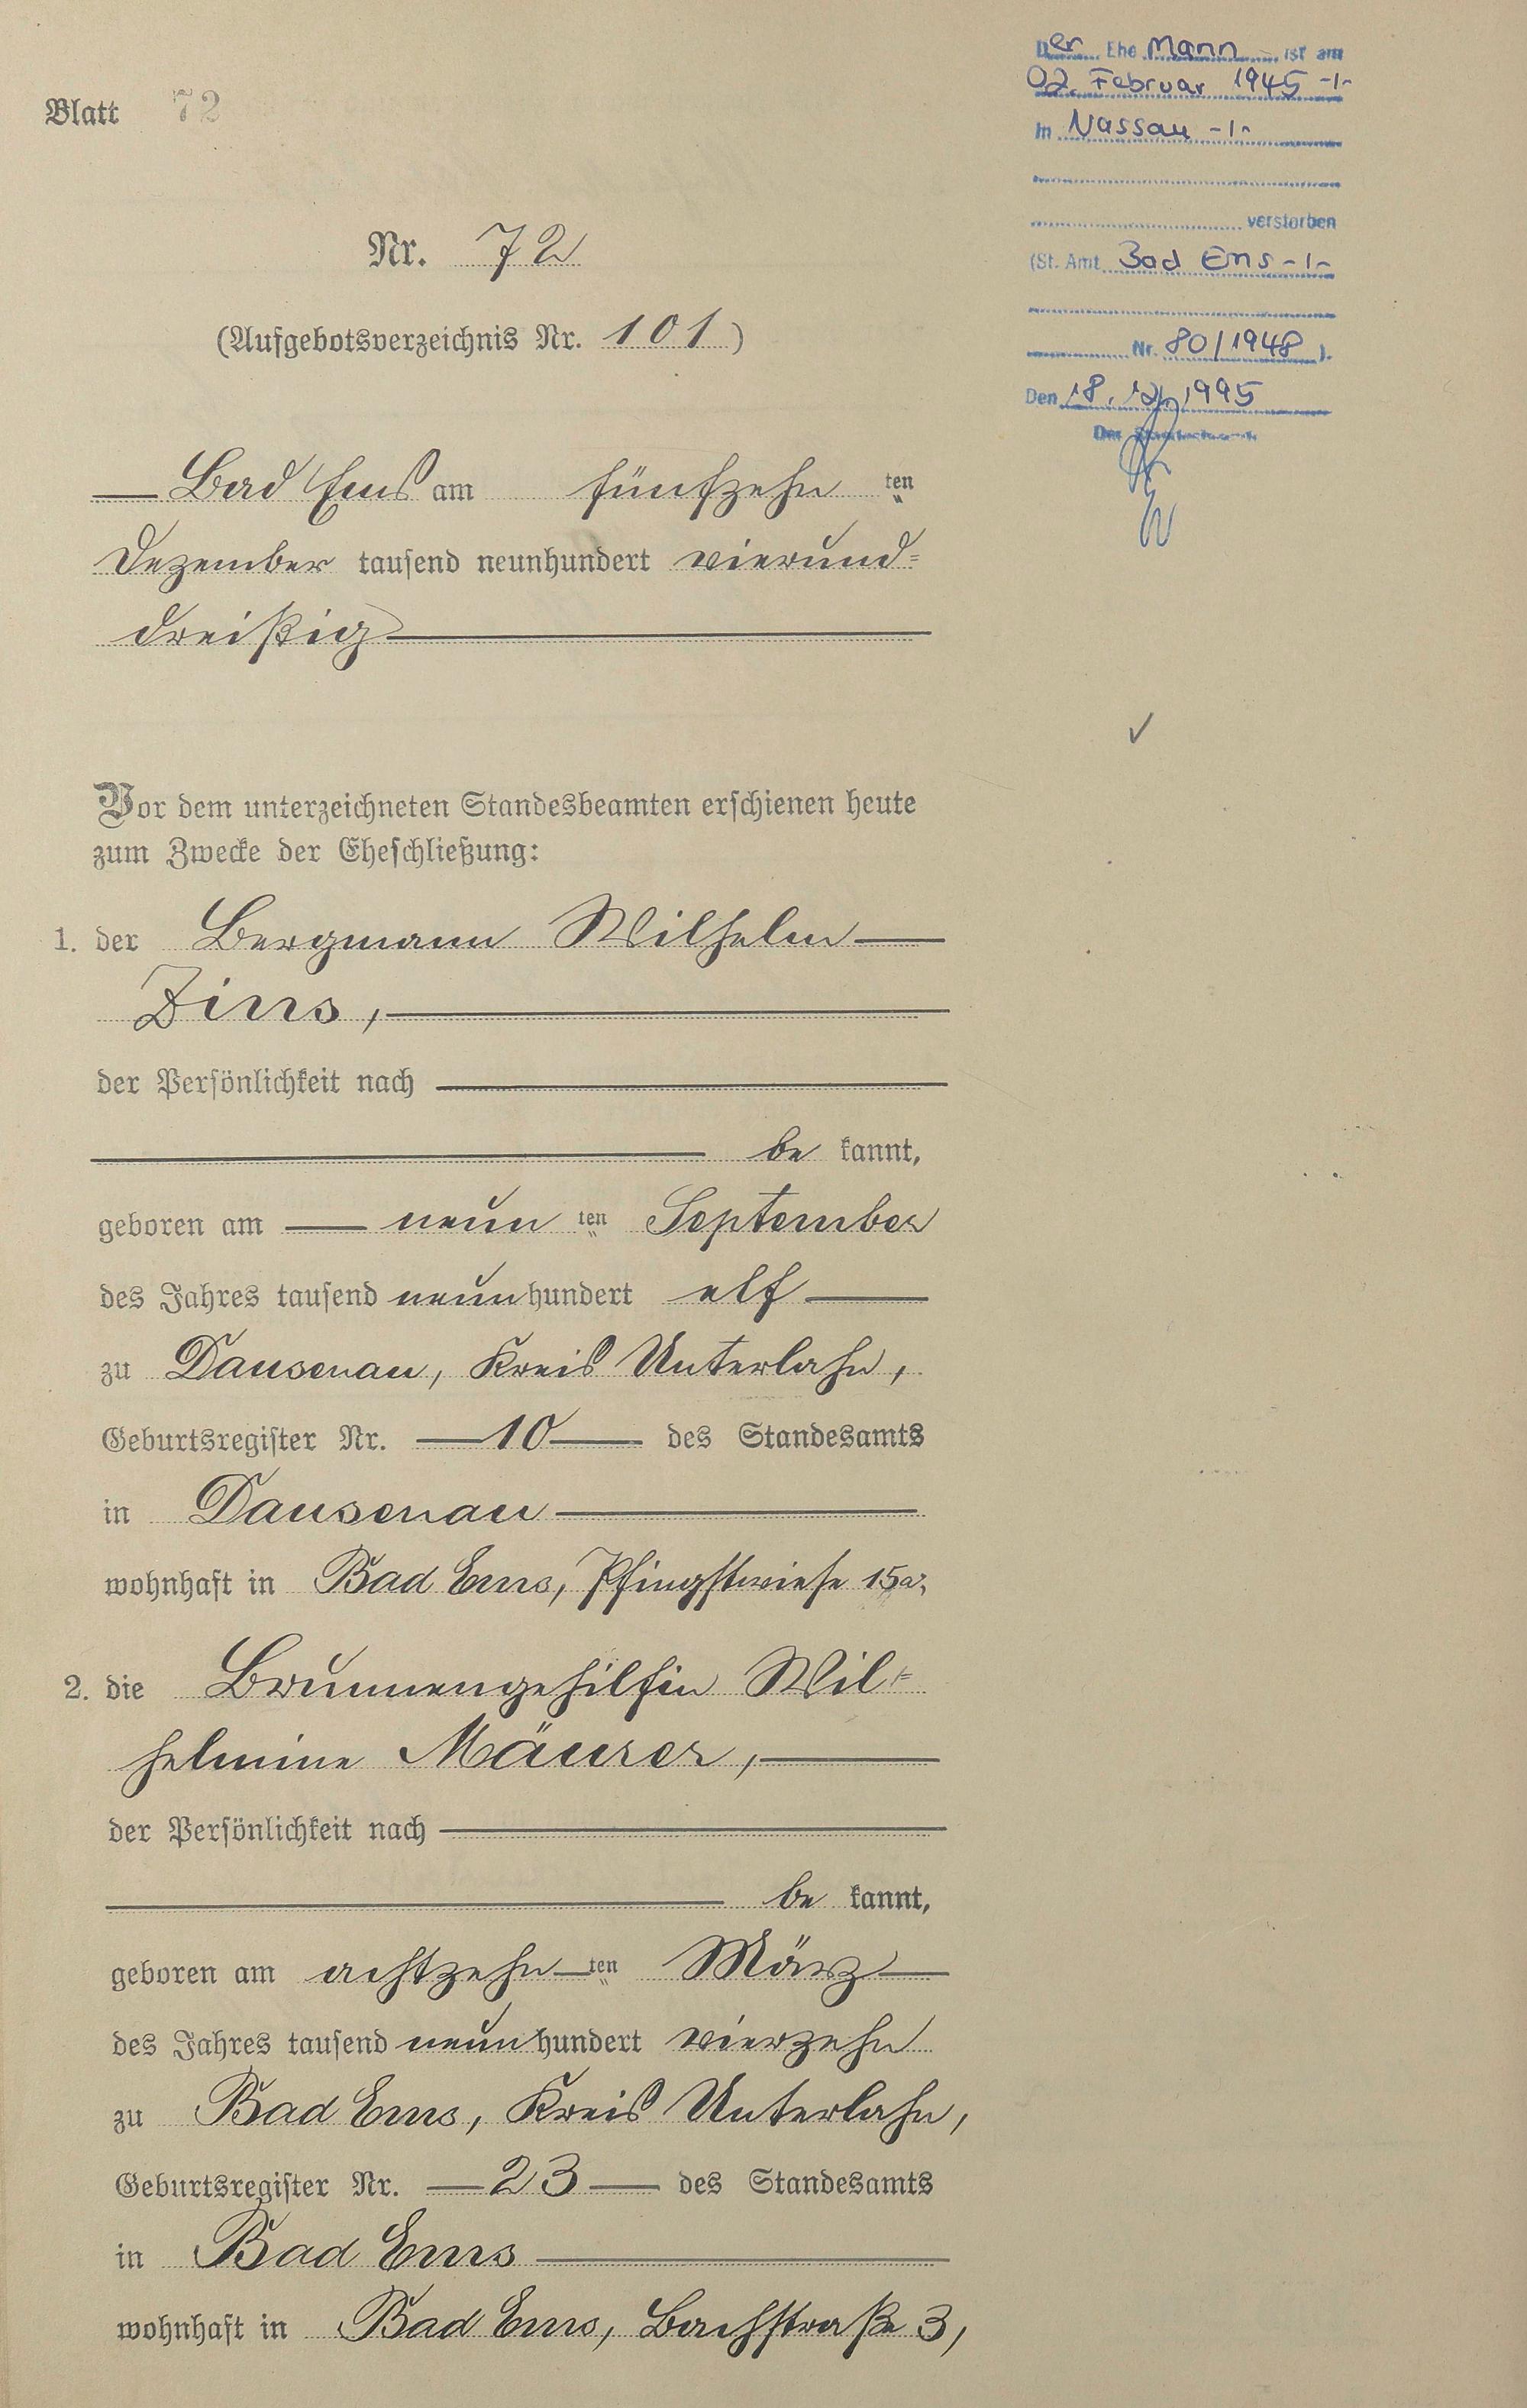 Blatt 72
Nr. 72
(Aufgebotsverzeichnis Nr. 101)
Bad Ems am fünfzehn ten
Dezember tausend neunhundert vierund=
dreißig
Vor dem unterzeichneten Standesbeamten erschienen heute
zum Zwecke der Eheschließung:
1. der Bergmann Wilhelm
Zins,
der Persönlichkeit nach
be kannt,
geboren am neun ten September
des Jahres tausend neunhundert elf
zu Dausenau, Kreis Unterlahn,
Geburtsregister Nr. 10 des Standesamts
in Dausenau
wohnhaft in Bad Ems, Pfingstwiese 15a;
2. die Brunnengehilfin Wil=
helmine Mäurer,
der Persönlichkeit nach
be kannt,
geboren am achtzehn ten März
des Jahres tausend neunhundert vierzehn
zu Bad Ems, Kreis Unterlahn,
Geburtsregister Nr. 23 des Standesamts
in Bad Ems
wohnhaft in Bad Ems, Bachstraße 3,
Der Ehe Mann ist am
02. Februar 1945 -/-
in Nassau -/-
verstorben
(St. Amt Bad Ems -/-
Nr. 80/1948 ).
Den 18.12.1995